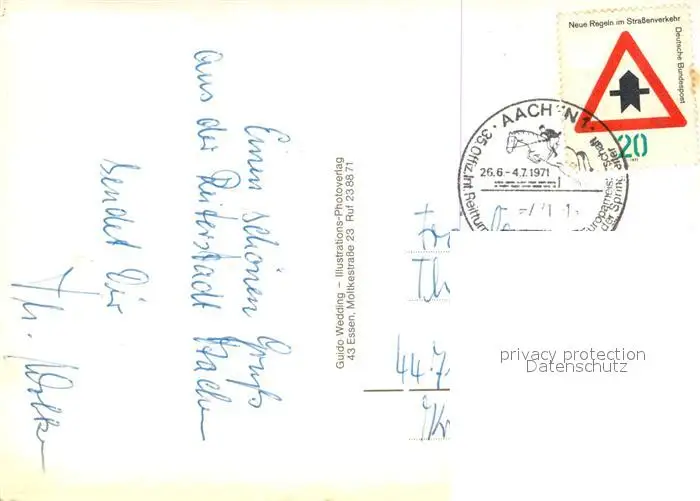 Einen schönen Gruß
aus der Reiterstadt Aachen
sendet Dir
Guido Wedding – Illustrations-Photoverlag
43 Essen, Moltkestraße 23 Ruf 23 88 71
Neue Regeln im Straßenverkehr
Deutsche Bundespost
20
1971
AACHEN 1
35. Offiz. Int. Reittur
26.6 - 4.7.1971
Europameis
schaft
der Spring
reiter
44
privacy protection
Datenschutz